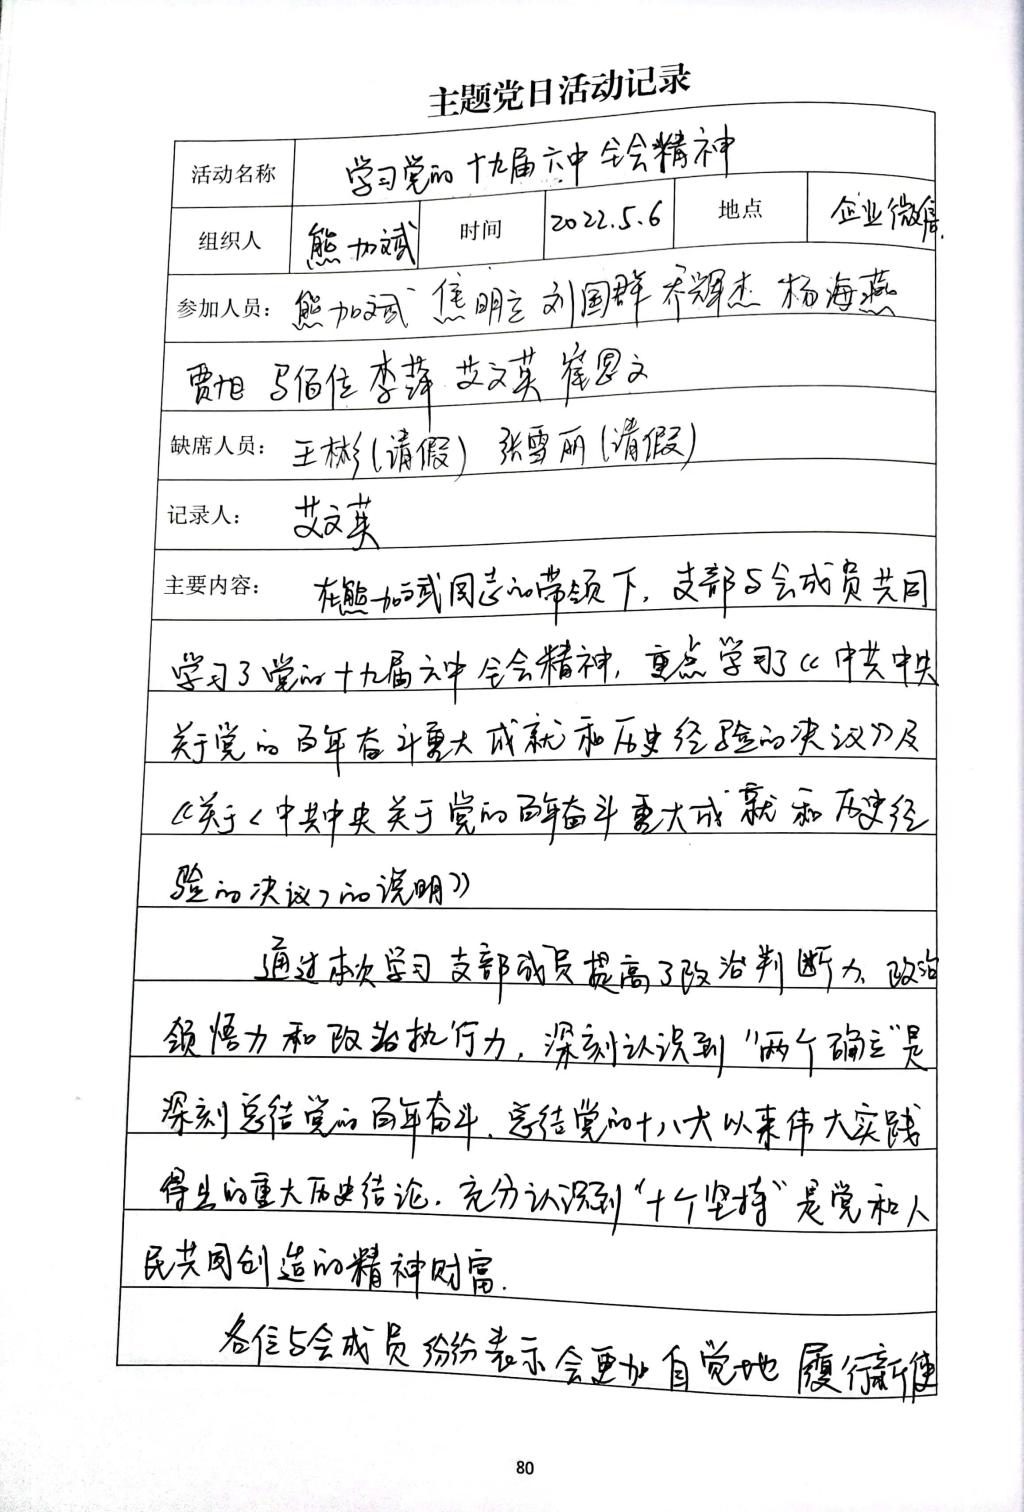 主题党日活动记录
活动名称 学习党的十九届六中全会精神
组织人 熊加斌 时间 2022.5.6 地点 企业微信.
参加人员： 熊加斌 焦明立 刘国群 乔辉杰 杨海燕
贾旭 马佰位 李萍 艾文英 崔恩文
缺席人员： 王彬(请假) 张雪丽(请假)
记录人： 艾文英
主要内容： 在熊加斌同志的带领下，支部与会成员共同
学习了党的十九届六中全会精神，重点学习了《中共中央
关于党的百年奋斗重大成就和历史经验的决议》及
《关于<中共中央关于党的百年奋斗重大成就和历史经
验的决议>的说明》
通过本次学习支部成员提高了政治判断力、政治
领悟力和政治执行力，深刻认识到“两个确立”是
深刻总结党的百年奋斗、总结党的十八大以来伟大实践
得出的重大历史结论．充分认识到“十个坚持”是党和人
民共同创造的精神财富．
各位与会成员纷纷表示会更加自觉地履行新使
80